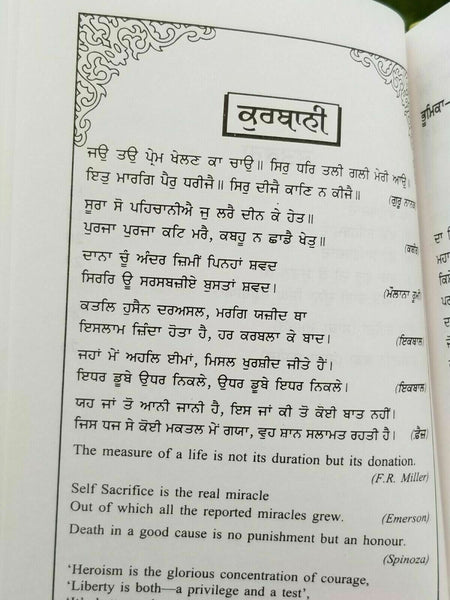 ਕੁਰਬਾਨੀ
ਜਉ ਤਉ ਪ੍ਰੇਮ ਖੇਲਣ ਕਾ ਚਾਉ॥ ਸਿਰੁ ਧਰਿ ਤਲੀ ਗਲੀ ਮੇਰੀ ਆਉ॥
ਇਤੁ ਮਾਰਗਿ ਪੈਰੁ ਧਰੀਜੈ॥ ਸਿਰੁ ਦੀਜੈ ਕਾਣਿ ਨ ਕੀਜੈ॥
(ਗੁਰੂ ਨਾਨਕ
ਸੂਰਾ ਸੋ ਪਹਿਚਾਨੀਐ ਜੁ ਲਰੈ ਦੀਨ ਕੇ ਹੇਤ॥
ਪੁਰਜਾ ਪੁਰਜਾ ਕਟਿ ਮਰੈ, ਕਬਹੂ ਨ ਛਾਡੈ ਖੇਤੁ॥
(ਕਬੀਰ)
ਦਾਨਾ ਚੂੰ ਅੰਦਰ ਜ਼ਿਮੀਂ ਪਿਨਹਾਂ ਸ਼ਵਦ
ਸਿਰਰਿ ਊ ਸਰਸਬਜ਼ੀਏ ਬੁਸਤਾਂ ਸ਼ਵਦ।
(ਮੌਲਾਨਾ ਰੂਮੀ)
ਕਤਲਿ ਹੁਸੈਨ ਦਰਅਸਲ, ਮਰਗਿ ਯਜ਼ੀਦ ਥਾ
ਇਸਲਾਮ ਜ਼ਿੰਦਾ ਹੋਤਾ ਹੈ, ਹਰ ਕਰਬਲਾ ਕੇ ਬਾਦ।
(ਇਕਬਾਲ)
ਜਹਾਂ ਮੇਂ ਅਹਲਿ ਈਮਾਂ, ਮਿਸਲ ਖੁਰਸ਼ੀਦ ਜੀਤੇ ਹੈਂ।
ਇਧਰ ਡੂਬੇ ਉਧਰ ਨਿਕਲੇ, ਉਧਰ ਡੂਬੇ ਇਧਰ ਨਿਕਲੇ।
(ਇਕਬਾਲ)
ਯਹ ਜਾਂ ਤੋ ਆਨੀ ਜਾਨੀ ਹੈ, ਇਸ ਜਾਂ ਕੀ ਤੋ ਕੋਈ ਬਾਤ ਨਹੀਂ।
ਜਿਸ ਧਜ ਸੇ ਕੋਈ ਮਕਤਲ ਮੇਂ ਗਯਾ, ਵੁਹ ਸ਼ਾਨ ਸਲਾਮਤ ਰਹਤੀ ਹੈ। (ਫ਼ੈਜ਼)
The measure of a life is not its duration but its donation.
(F.R. Miller)
Self Sacrifice is the real miracle
Out of which all the reported miracles grew. (Emerson)
Death in a good cause is no punishment but an honour.
(Spinoza)
'Heroism is the glorious concentration of courage,
'Liberty is both—a privilege and a test',
ਭੂਮਿਕਾ—